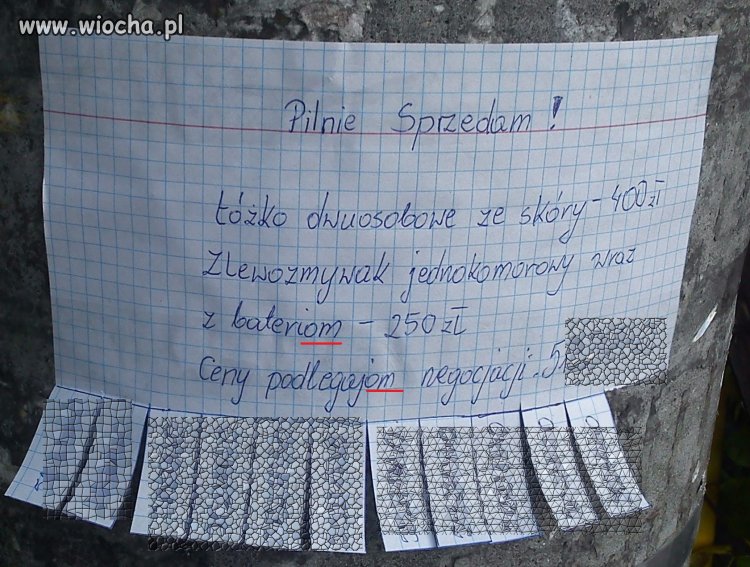 www.wiocha.pl
Pilnie Sprzedam!
Łóżko dwuosobowe ze skóry - 400 zł
Zlewozmywak jednokomorowy wraz
z bateriom - 250 zł
Ceny podlegajom negocjacji: 5